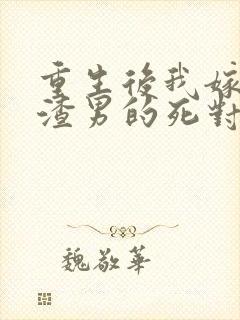 重生後我嫁
渣男的死對
魏敬華